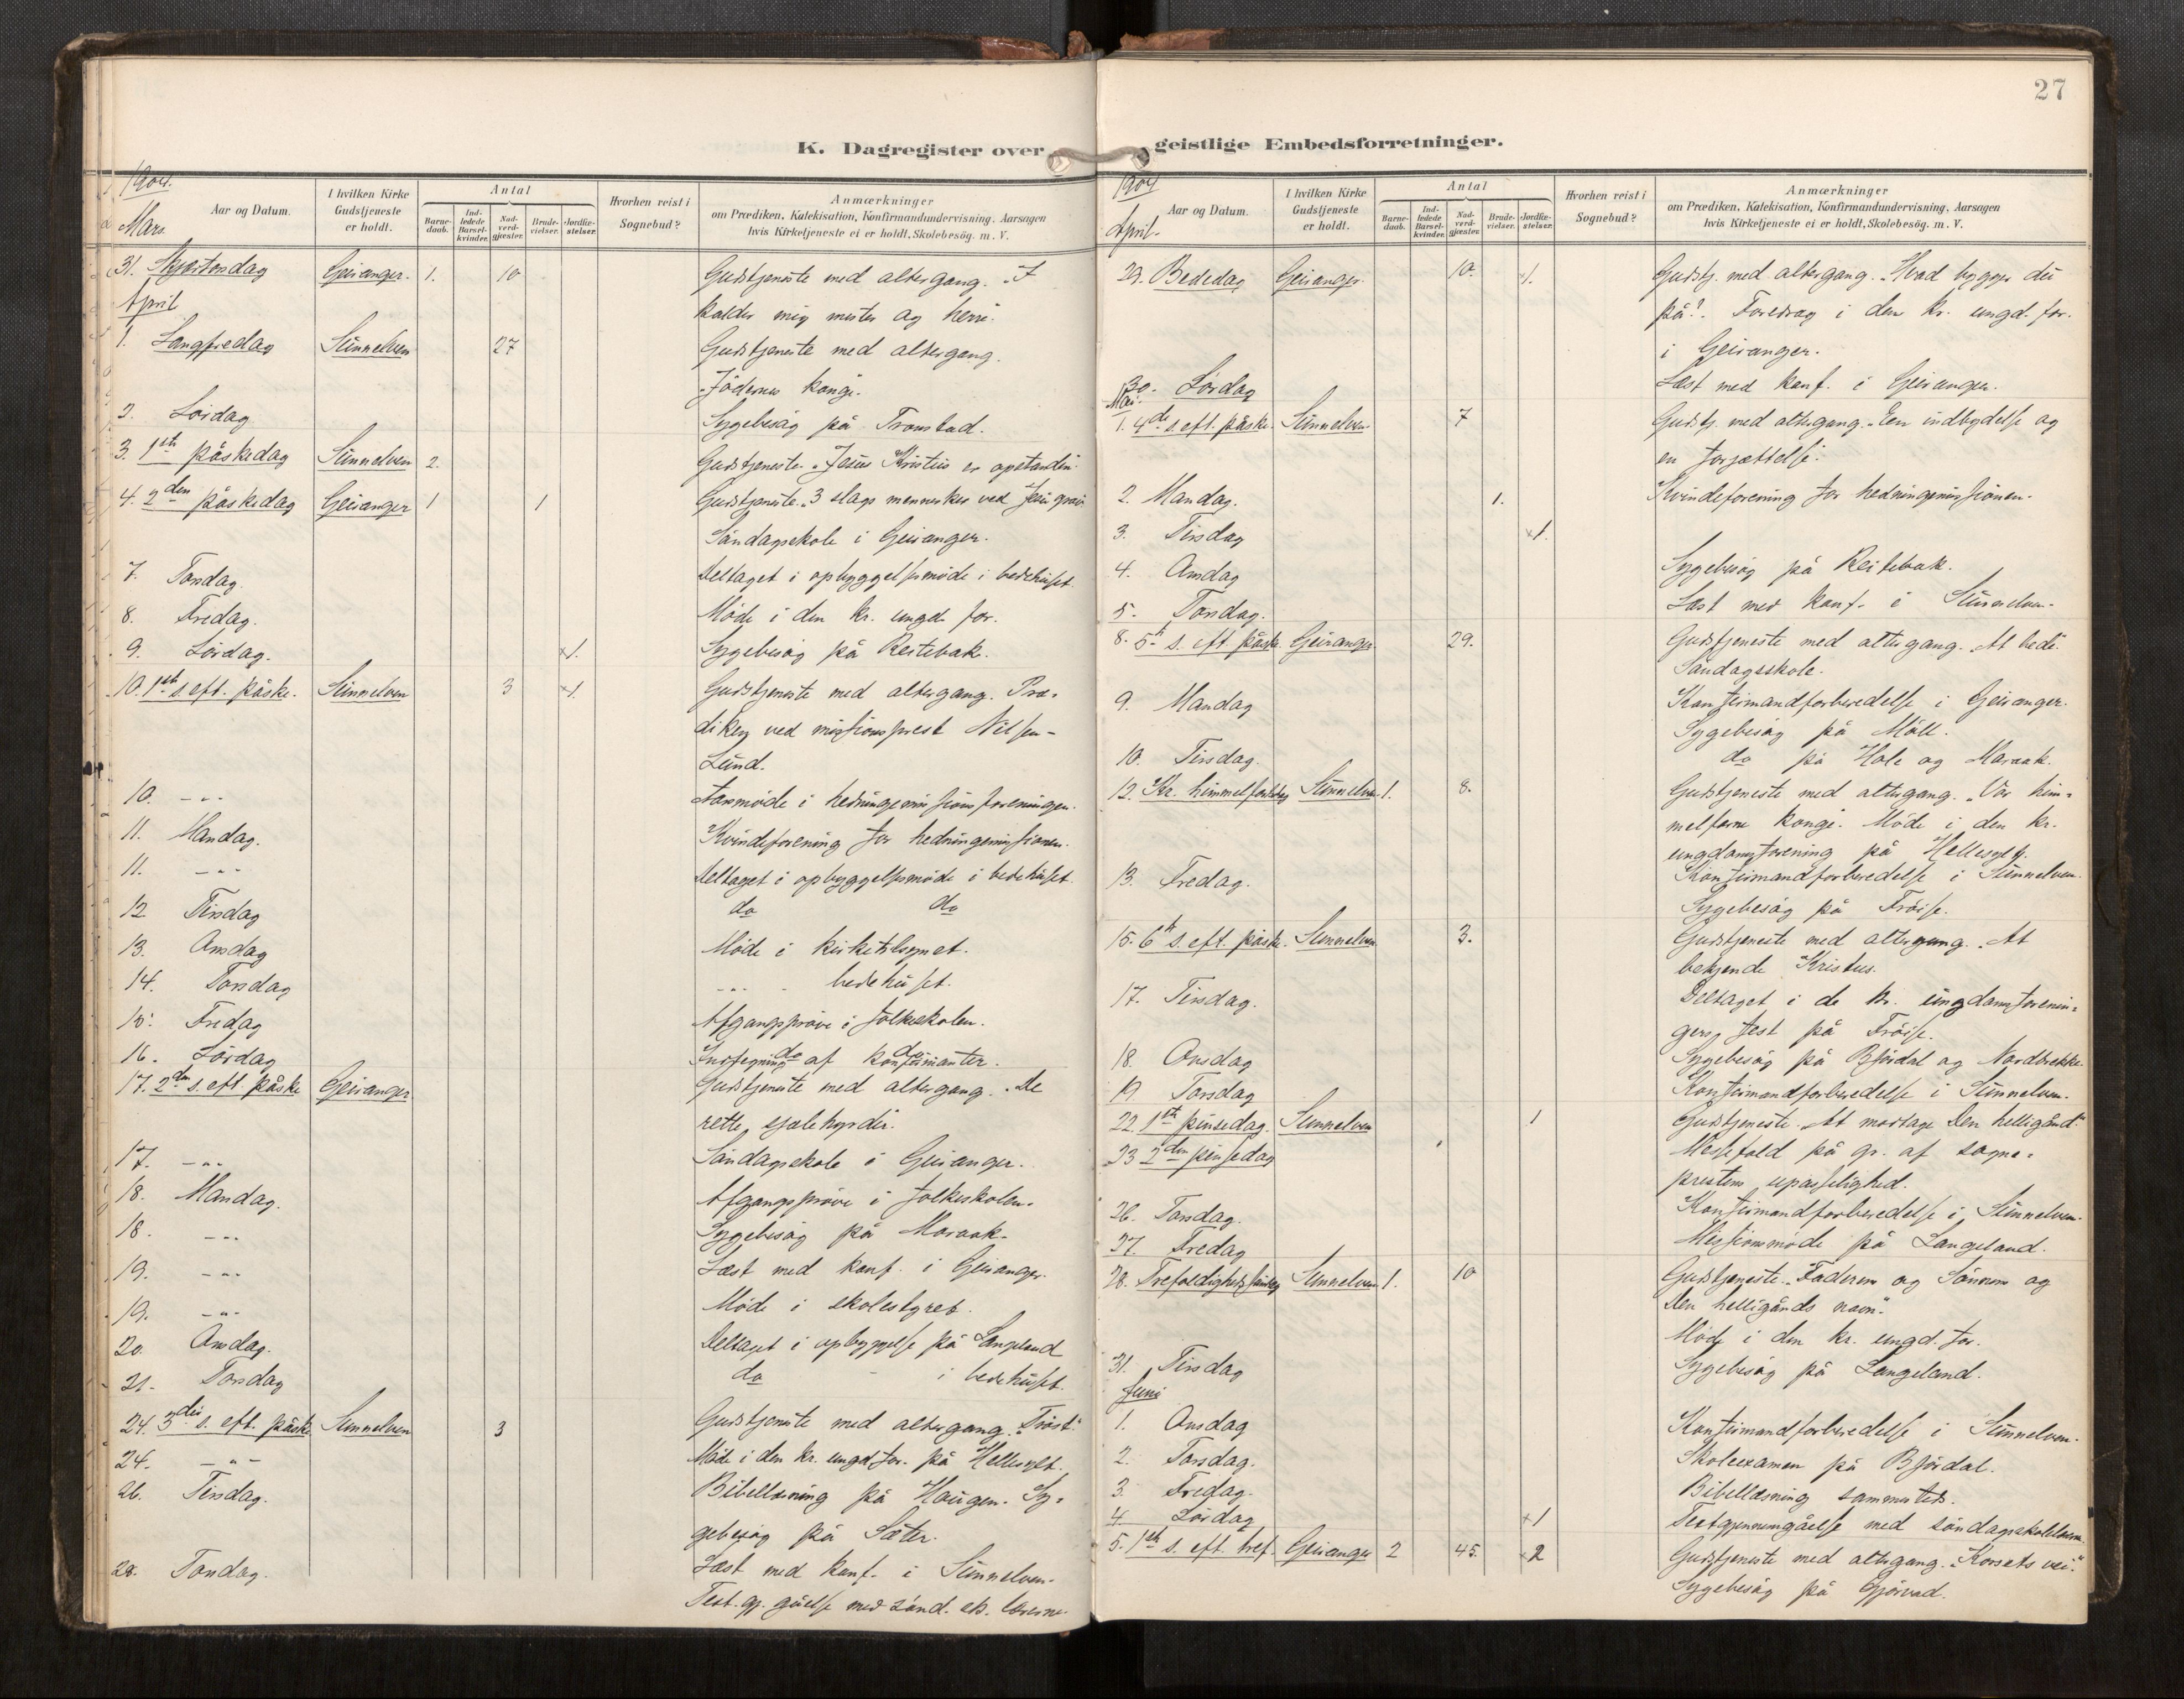 27
K. Dagregister over geistlige Embedsforretninger.
1904.
Mars.
Aar og Datum.
I hvilken Kirke Gudstjeneste er holdt.
Antal
Barne-daab.
Ind-ledede Barsel-kvinder.
Nad-verd-gjæster.
Brude-vielser.
Jordfæ-stelser.
Hvorhen reist i Sognebud?
Anmærkninger
om Prædiken, Katekisation, Konfirmandundervisning, Aarsagen
hvis Kirketjeneste ei er holdt, Skolebesög. m. V.
31. Skjærtorsdag Geiranger. 1. 10 Gudstjeneste med altergang. "I
April kalder mig mester og herre."
1. Langfredag Sunnelven 27 Gudstjeneste med altergang.
"Jödernes konge."
2. Lördag Sygebesög på Tronstad.
3. 1ste påskedag Sunnelven 2. Gudstjeneste. "Jesus Kristus er opstanden."
4. 2den påskedag Geiranger 1 1 Gudstjeneste. "3 slags mennesker ved Jesu grav."
Söndagsskole i Geiranger.
7. Torsdag. Deltaget i opbyggelsesmöde i bedehuset.
8. Fredag. Möde i den kr. ungd. for.
9. Lördag. x1. Sygebesög på Reitebak.
10. 1ste s. eft. påske. Sunnelven 3 x1. Gudstjeneste med altergang. Præ-
diken ved missionsprest Nilsen-
Lund.
10. - " - Aarsmöde i hedningemissionsforeningen.
11. Mandag. Kvindeforening for hedningemissionen.
11. - " - Deltaget i opbyggelsesmöde i bedehuset.
12 Tirsdag do do
13. Onsdag Möde i kirketilsynet.
14. Torsdag - " - bedehuset.
15. Fredag Afgangspröve i folkeskolen.
16. Lördag do do
Indtegning af konfirmanter.
17. 2den s. eft. påske Geiranger Gudstjeneste med altergang. "De
rette sjælehyrder."
17. - " - Söndagsskole i Geiranger.
18. Mandag. Afgangspröve i folkeskolen.
18. - " - Sygebesög på Maraak.
19. - " - Læst med konf. i Geiranger.
19. - " - Möde i skolestyret.
20. Onsdag. Deltaget i opbyggelse på Langeland
21. Torsdag do - i bedehuset.
24. 3die s. eft. påske Sunnelven 3 Gudstjeneste med altergang. "Tröst."
24. - " - Möde i den kr. ungd. for. på Hellesylt.
26. Tirsdag. Bibellæsning på Haugen. Sy-
gebesög på Sæter.
28. Torsdag. Læst med konf. i Sunnelven.
Text. gj. gåelse med sönd. sk. lærerne.
1904
April.
Aar og Datum.
I hvilken Kirke Gudstjeneste er holdt.
Antal
Barne-daab.
Ind-ledede Barsel-kvinder.
Nad-verd-gjæster.
Brude-vielser.
Jordfæ-stelser.
Hvorhen reist i Sognebud?
Anmærkninger
om Prædiken, Katekisation, Konfirmandundervisning, Aarsagen
hvis Kirketjeneste ei er holdt, Skolebesög. m. V.
29. Bededag Geiranger. 10. x1. Gudstj. med altergang. "Hvad bygger du
på?". Foredrag i den kr. ungd. for.
i Geiranger.
30. Lördag Læst med konf. i Geiranger.
Mai.
1. 4de s. eft. påske. Sunnelven. 7 Gudstj. med altergang. "En indbydelse og
en forjættelse."
2. Mandag. 1. Kvindeforening for hedningemissionen.
3. Tirsdag x1.
4. Onsdag Sygebesög på Reitebak.
5. Torsdag. Læst med konf. i Sunnelven.
8. 5te s. eft. påske. Geiranger 29. Gudstjeneste med altergang. "At bede."
Söndagsskole.
9. Mandag Konfirmandforberedelse i Geiranger.
Sygebesög på Möll.
10. Tirsdag. do på Hole og Maraak.
12. Kr. himmelfartsdag Sunnelven 1. 8. Gudstjeneste med altergang. "Vor him-
melfarne konge." Möde i den kr.
ungdomsforening på Hellesylt.
13. Fredag. Konfirmandforberedelse i Sunnelven.
Sygebesög på Fröise.
15. 6te s. eft. påske. Sunnelven 3. Gudstjeneste med altergang. "At
bekjende Kristus."
17. Tirsdag. Deltaget i de kr. ungdomsforenin-
gers fest på Fröise.
18. Onsdag Sygebesög på Björdal og Nordbrekke.
19. Torsdag Konfirmandforberedelse i Sunnelven.
22. 1ste pinsedag. Sunnelven 1 Gudstjeneste. "At mottage Den helligånd."
23 2den pinsedag Messefald på gr. af sogne-
prestens upasselighed.
26. Torsdag. Konfirmandforberedelse i Sunnelven.
27. Fredag Missionsmöde på Langeland.
28. Trefoldighetssöndag Sunnelven 1. 10 Gudstjeneste. "Faderens og Sönnens og
Den helligånds navn."
Möde i den kr. ungd. for.
31. Tirsdag Sygebesög på Langeland.
Juni
1. Onsdag Konfirmandforberedelse i Sunnelven.
2. Torsdag. Skoleexamen på Björdal.
3. Fredag. Bibellæsning sammesteds.
4. Lördag x1 Textgjennemgåelse med söndagsskolelærerne
5. 1ste s. eft. tref. Geiranger 2 45. x2 Gudstjeneste med altergang. "Korsets vei."
Sygebesög på Gjörvad.